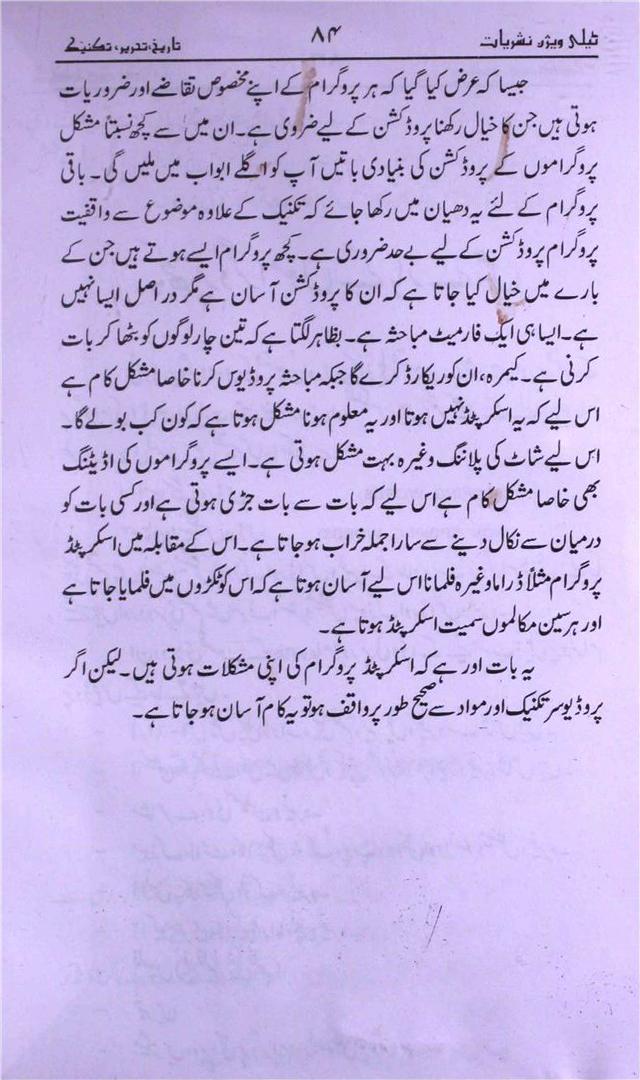 ٹیلی ویژن نشریات ۸۴ تاریخ، تحریر، تکنیک
جیسا کہ عرض کیا گیا کہ ہر پروگرام کے اپنے مخصوص تقاضے اور ضروریات
ہوتی ہیں جن کا خیال رکھنا پروڈکشن کے لیے ضروی ہے۔ ان میں سے کچھ نسبتاً مشکل
پروگراموں کے پروڈکشن کی بنیادی باتیں آپ کو اگلے ابواب میں ملیں گی۔ باقی
پروگرام کے لئے یہ دھیان میں رکھا جائے کہ تکنیک کے علاوہ موضوع سے واقفیت
پروگرام پروڈکشن کے لیے بے حد ضروری ہے۔ کچھ پروگرام ایسے ہوتے ہیں جن کے
بارے میں خیال کیا جاتا ہے کہ ان کا پروڈکشن آسان ہے مگر دراصل ایسا نہیں
ہے۔ ایسا ہی ایک فارمیٹ مباحثہ ہے۔ بظاہر لگتا ہے کہ تین چار لوگوں کو بٹھا کر بات
کرنی ہے۔ کیمرہ، ان کو ریکارڈ کرے گا جبکہ مباحثہ پروڈیوس کرنا خاصا مشکل کام ہے
اس لیے کہ یہ اسکرپٹڈ نہیں ہوتا اور یہ معلوم ہونا مشکل ہوتا ہے کہ کون کب بولے گا۔
اس لیے شاٹ کی پلاننگ وغیرہ بہت مشکل ہوتی ہے۔ ایسے پروگراموں کی اڈیٹنگ
بھی خاصا مشکل کام ہے اس لیے کہ بات سے بات جڑی ہوتی ہے اور کسی بات کو
درمیان سے نکال دینے سے سارا جملہ خراب ہو جاتا ہے۔ اس کے مقابلہ میں اسکرپٹڈ
پروگرام مثلاً ڈراما وغیرہ فلمانا اس لیے آسان ہوتا ہے کہ اس کو ٹکڑوں میں فلمایا جاتا ہے
اور ہر سین مکالموں سمیت اسکرپٹڈ ہوتا ہے۔
یہ بات اور ہے کہ اسکرپٹڈ پروگرام کی اپنی مشکلات ہوتی ہیں۔ لیکن اگر
پروڈیوسر تکنیک اور مواد سے صحیح طور پر واقف ہو تو یہ کام آسان ہو جاتا ہے۔